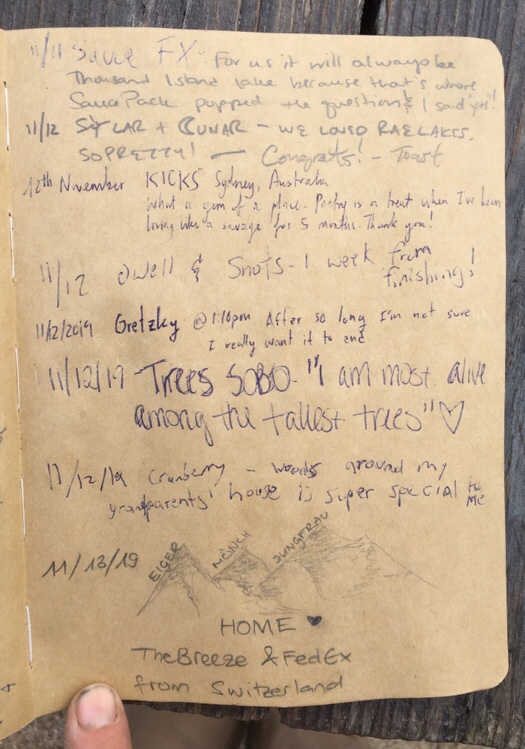 11/11 Sauce FX: For us it will always be
Thousand Island lake because that's where
Sauce Pack popped the question & I said "yes"!
11/12 SKYLAR + LUNAR - WE LOVED RAE LAKES.
SO PREZZY! — Congrats! - Toast
12th November KICKS Sydney, Australia
What a gem of a place. Poetry is a treat when I've been
living like a savage for 5 months. Thank you!
11/12 Owell & Snots - 1 week from
finishing!
11/12/2019 Gretzky @ 1:10pm After so long I'm not sure
I really want it to end
11/12/19 Trees SOBO. "I am most alive
among the tallest trees" ♡
11/12/19 Cranberry - woods around my
grandparents' house is super special to
me
11/13/19 EIGER MÖNCH JUNGFRAU
HOME ♥
TheBreeze & FedEx
from Switzerland